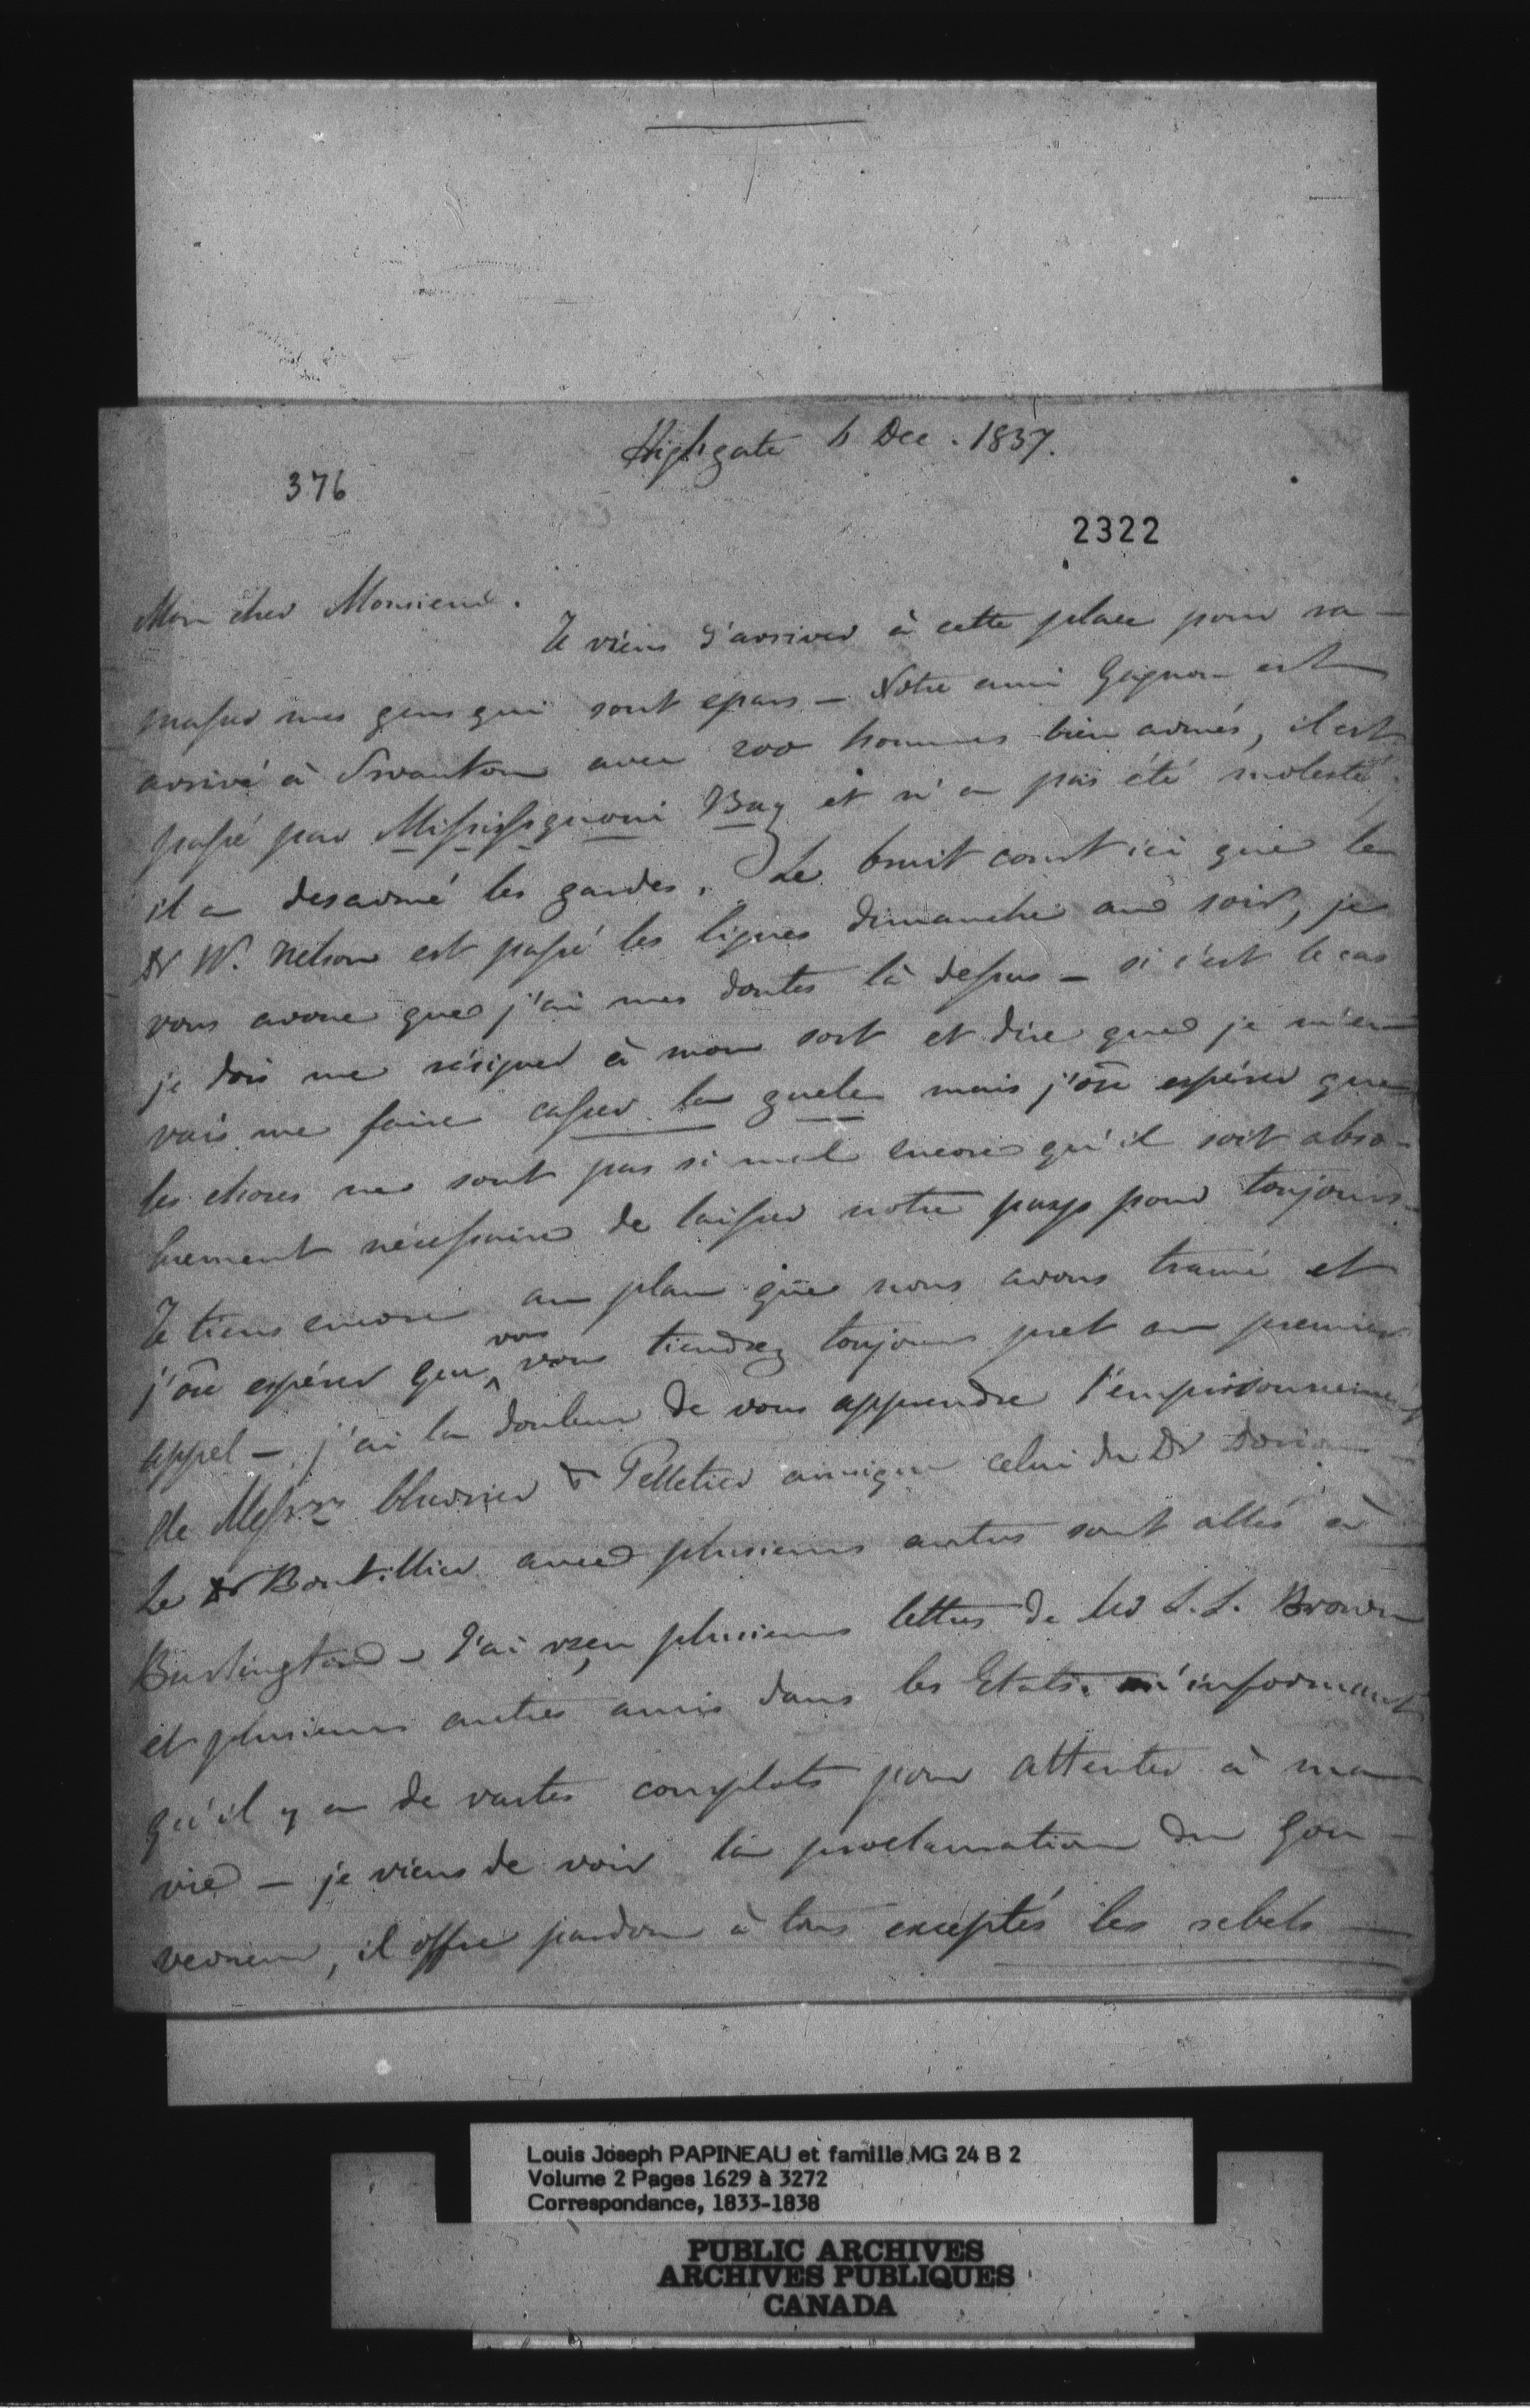 Highgate 6 Dec. 1837.
376
2322
Mon cher Monsieur.
Je viens d'arriver à cette place pour ra-
masser mes gens qui sont epars — Notre ami Gagnon est
arrivé à Swanton avec 200 hommes bien armés, il est
passé par Missisquoui Bay et n'a pas été molesté,
il a desarmé les gardes. Le bruit court ici que le
Dr W. Nelson est passé les lignes dimanche au soir, je
vous avoue que j'ai mes doutes là dessus — si c'est le cas
je dois me résigner à mon sort et dire que je m'en
vais me faire casser la guele mais j'ôse espérer que
les choses ne sont pas si mal encore qu'il soit abso-
luement nécessaire de laisser notre pays pour toujours.
Je tiens encore au plan que nous avons tramé et
j'ôse espérer que vous vous tiendrez toujours pret au premier
appel — j'ai la douleur de vous apprendre l'emprisonnement
de Messrs Cherrier & Pelletier ainsique celui du Dr Dorion
Le Dr Boutillier avec plusieurs autres sont allés à
Burlington — J'ai reçu plusieurs lettres de L. L. Brown
et plusieurs autres amis dans les Etats. m'informant
qu'il y a de vastes complots pour attenter à ma
vie — je viens de voir la proclamation du Gou-
verneur, il offre pardon à tous exceptés les rebels —
Louis Joseph PAPINEAU et famille MG 24 B 2
Volume 2 Pages 1629 à 3272
Correspondance, 1833-1838
PUBLIC ARCHIVES
ARCHIVES PUBLIQUES
CANADA